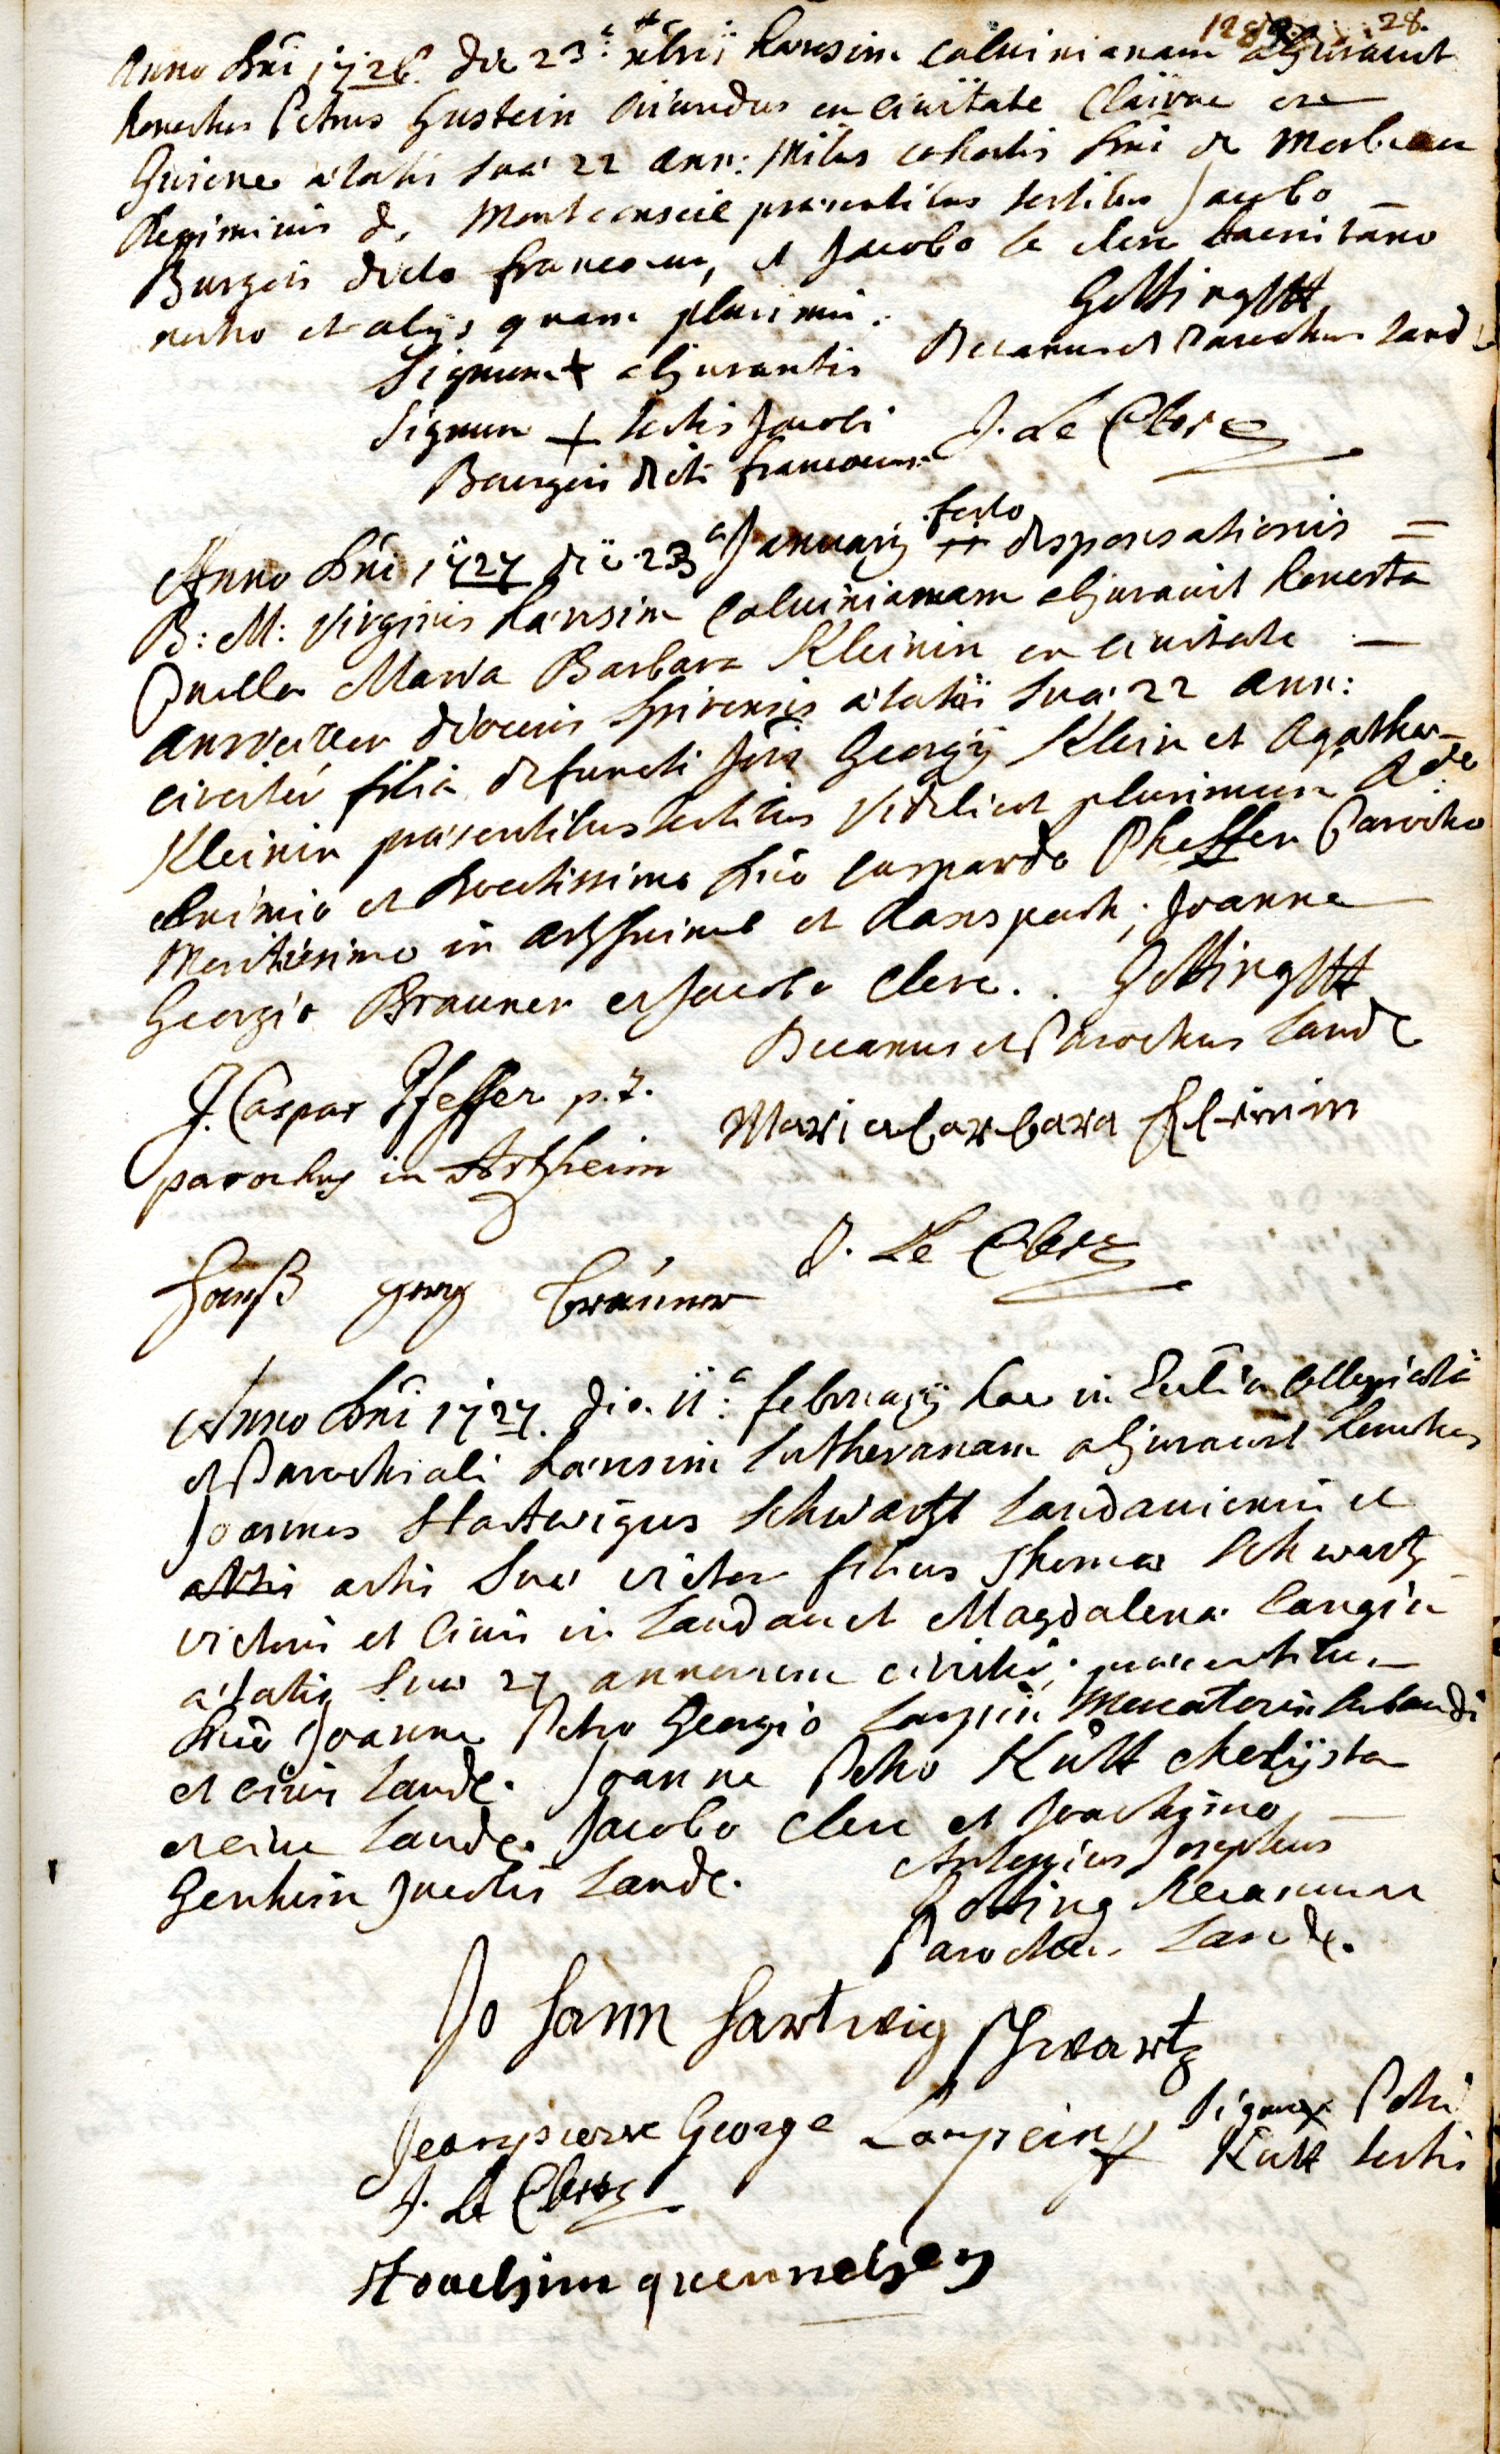 28.
Anno Dni 1726. die 23a xbris haeresim calvinianam abjuravit
honestus Petrus Gustein oriundus ex civitate Clairac ex
Guiene aetatis suae 22 ann: Miles cohortis Dni de
Regiminis de Montconseil praesentibus testibus Jacobo
Burgeis dicto francoeur, et Jacobo le clerc
nostro et alijs quam plurimis.
Götting
Decanus et Parochus Land
Signum + abjurantis
Signum + testis Jacobi
Bourgeis dicti francoeur
J. Le Clerc
Anno Dni 1727 die 23a Januarij festo desponsationis
B: M: Virginis haeresim Calvinianam abjuravit honesta
Puella Maria Barbara Kleinin ex civitate
Anweiller dioecesis Spirensis aetatis suae 22 ann:
circiter filia defuncti Jois Georgij Klein et Agathae
Kleinin praesentibus testibus videlicet plurimum Rdo
eximio et Doctissimo Dno Caspardo Pheffer Parocho
Meritissimo in Artzheimb et Ranspach; Joanne
Georgio Brauner et Jacobo Clerc.
Götting
Decanus et Parochus Landc
J. Caspar Pfeffer p. t.
parochus in Artzheim
Maria barbara Kleinin
Hanß georg braüner
J. Le Clerc
Anno Dni 1727. die 11a februarij hac in Eccli̅a Collegiata
et Parochiali haeresim Lutheranam abjuravit honestus
Joannes Hartwigus Schwartz Landaviensis et
artis suae vietor filius Thomae Schwartz
vietoris et Civis in Landau et Magdalena Langin
aetatis suae 27 annorum circiter; praesentibus
Dno Joanne Petro Georgio Laupein Mercatore
et civis Landc. Joanne Petro Kütt
et cive Landc. Jacobo Clerc et Joachimo
Landc.
Antonius Josephus
Götting Decanus ac
Parochus Landc.
Johann Hartwig Schwartz
Jeanpierre George Laupein
Signu x Petri
Kütt testis
J. Le Clerc